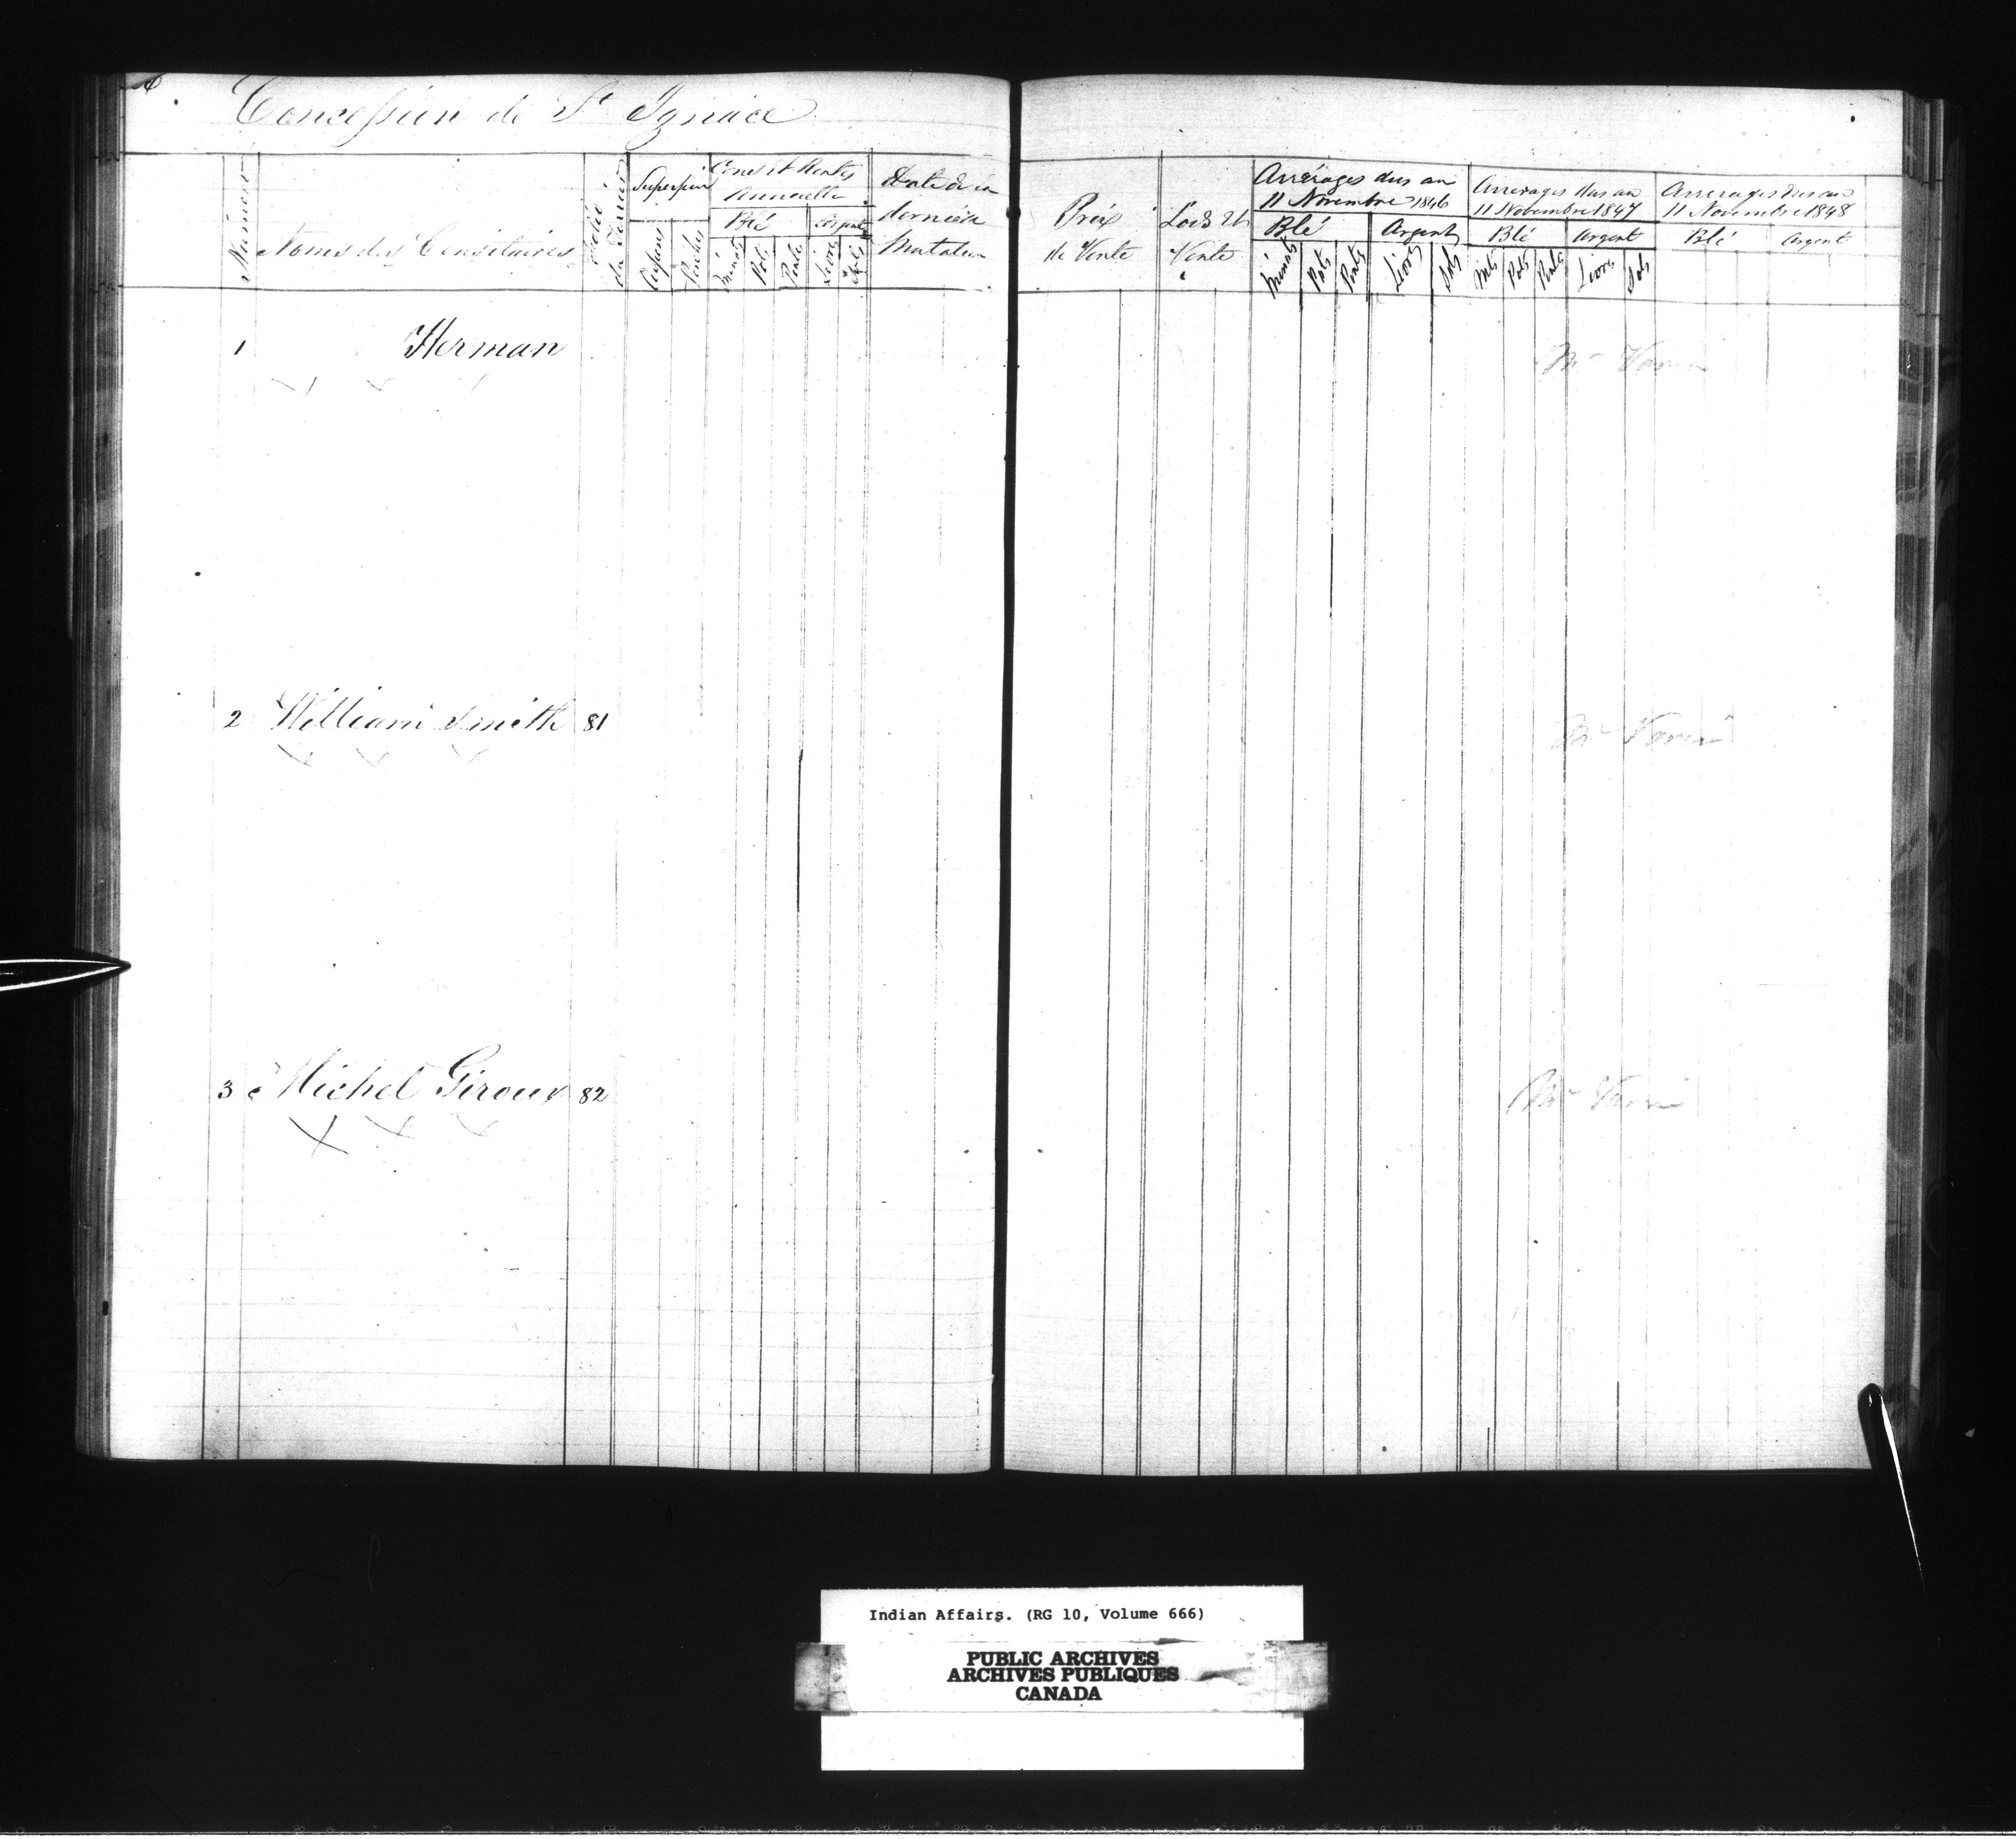 Concession de St Ignace
Numéros
Noms des Censitaires
Folio du Terrier
Superficie
Arpens
Perches
Cens et Rentes Annuelle
Blé
Argent
Minots
Pots
Pinte
Livres
Sols
Date de la dernière Mutation
Prix de Vente
Lods et Vente
Arrérages dus au 11 Novembre 1846
Blé
Argent
Minots
Pots
Pints
Livres
Sols
Arrerages dus au 11 Novembre 1847
Blé
Argent
Mts
Pots
Pints
Livres
Sols
Arrerages dus au 11 Novembre 1848
Blé
Argent
1 Herman
Mr Varin
2 William Smith 81
Mr Varin
3 Michel Giroux 82
Mr Varin
Indian Affairs. (RG 10, Volume 666)
PUBLIC ARCHIVES
ARCHIVES PUBLIQUES
CANADA